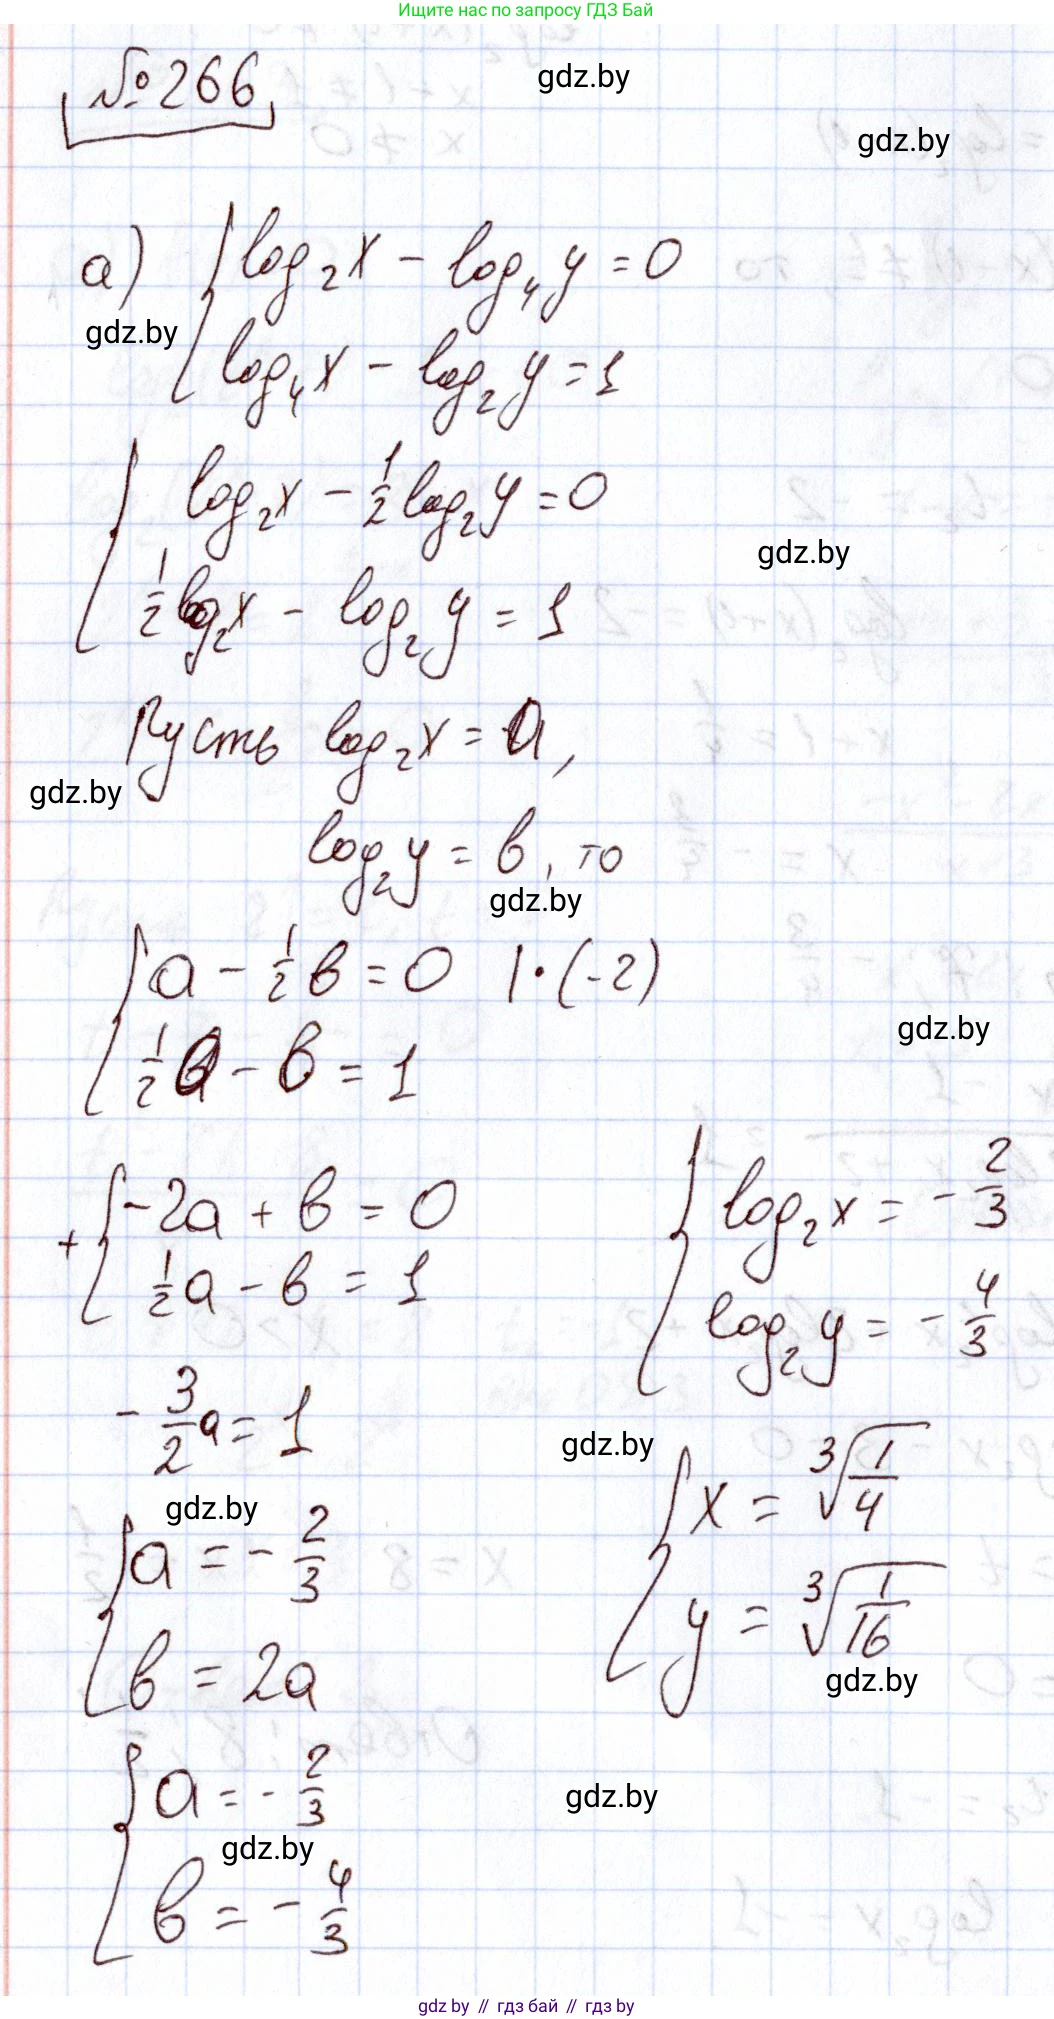 Ищите нас по запросу ГДЗ Бай
№266
gdz.by
gdz.by
а) { log₂x - log₄y = 0
gdz.by
log₄x - log₂y = 1
{ log₂x - 1/2 log₂y = 0
gdz.by
1/2 log₂x - log₂y = 1
Пусть log₂x = a,
gdz.by
log₂y = b, то
gdz.by
{ a - 1/2 b = 0 | · (-2)
gdz.by
1/2 a - b = 1
+ { -2a + b = 0
1/2 a - b = 1
- 3/2 a = 1
gdz.by
{ a = - 2/3
b = 2a
{ a = - 2/3
gdz.by
b = - 4/3
{ log₂x = - 2/3
log₂y = - 4/3
gdz.by
{ x = ∛(1/4)
y = ∛(1/16)
gdz.by
gdz.by
gdz by // гдз бай // гдз by